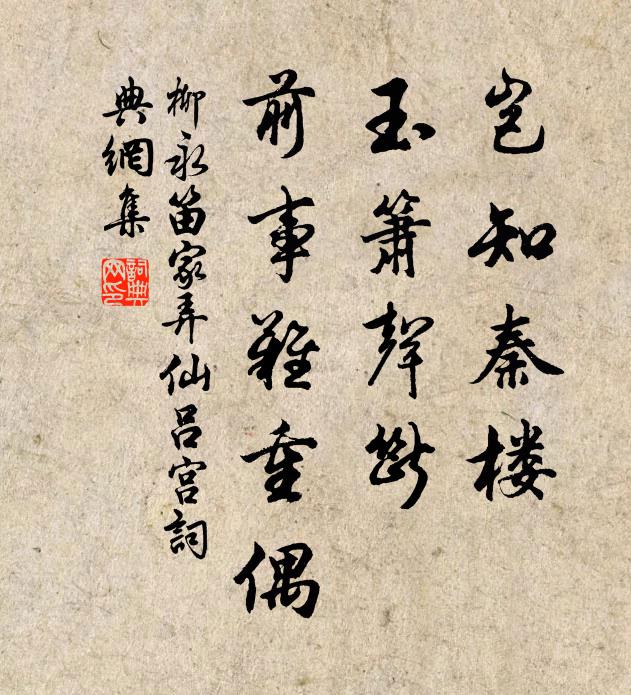 岂知秦楼
玉箫声断
前事难重偶
柳永笛家弄仙吕宫词
典網集
詞典網印